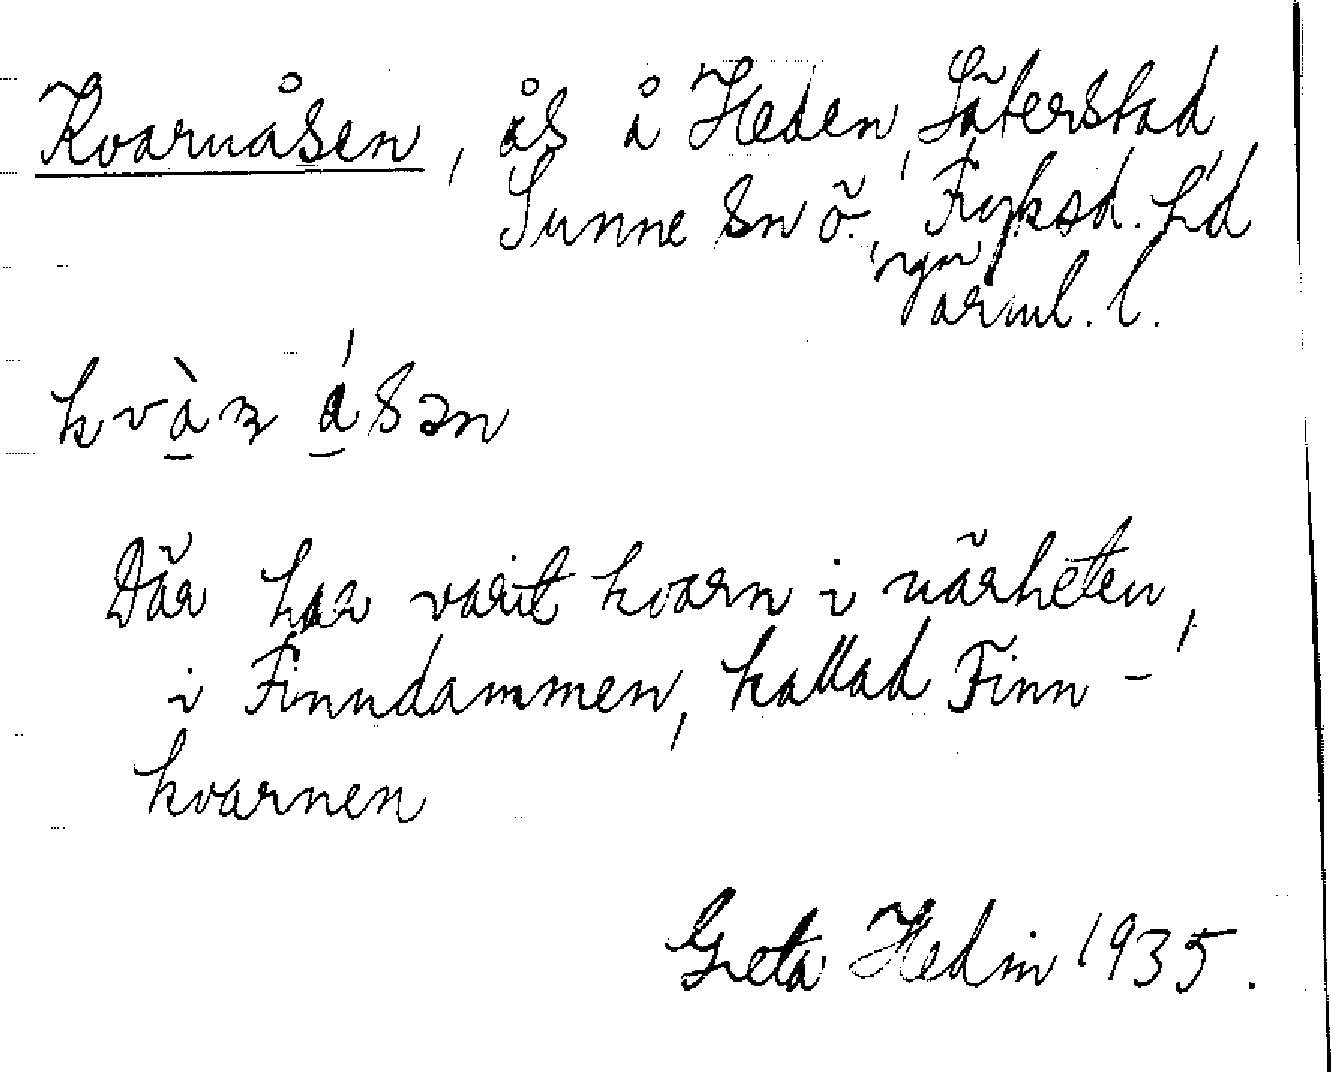 Kvarnåsen, ås å Heden, Säterstad
Sunne sn ö., Fryksd. hd
Värml. l.
kvàrn ásən
Där har varit kvarn i närheten,
i Finndammen, kallad Finn-
kvarnen
Greta Hedin 1935.